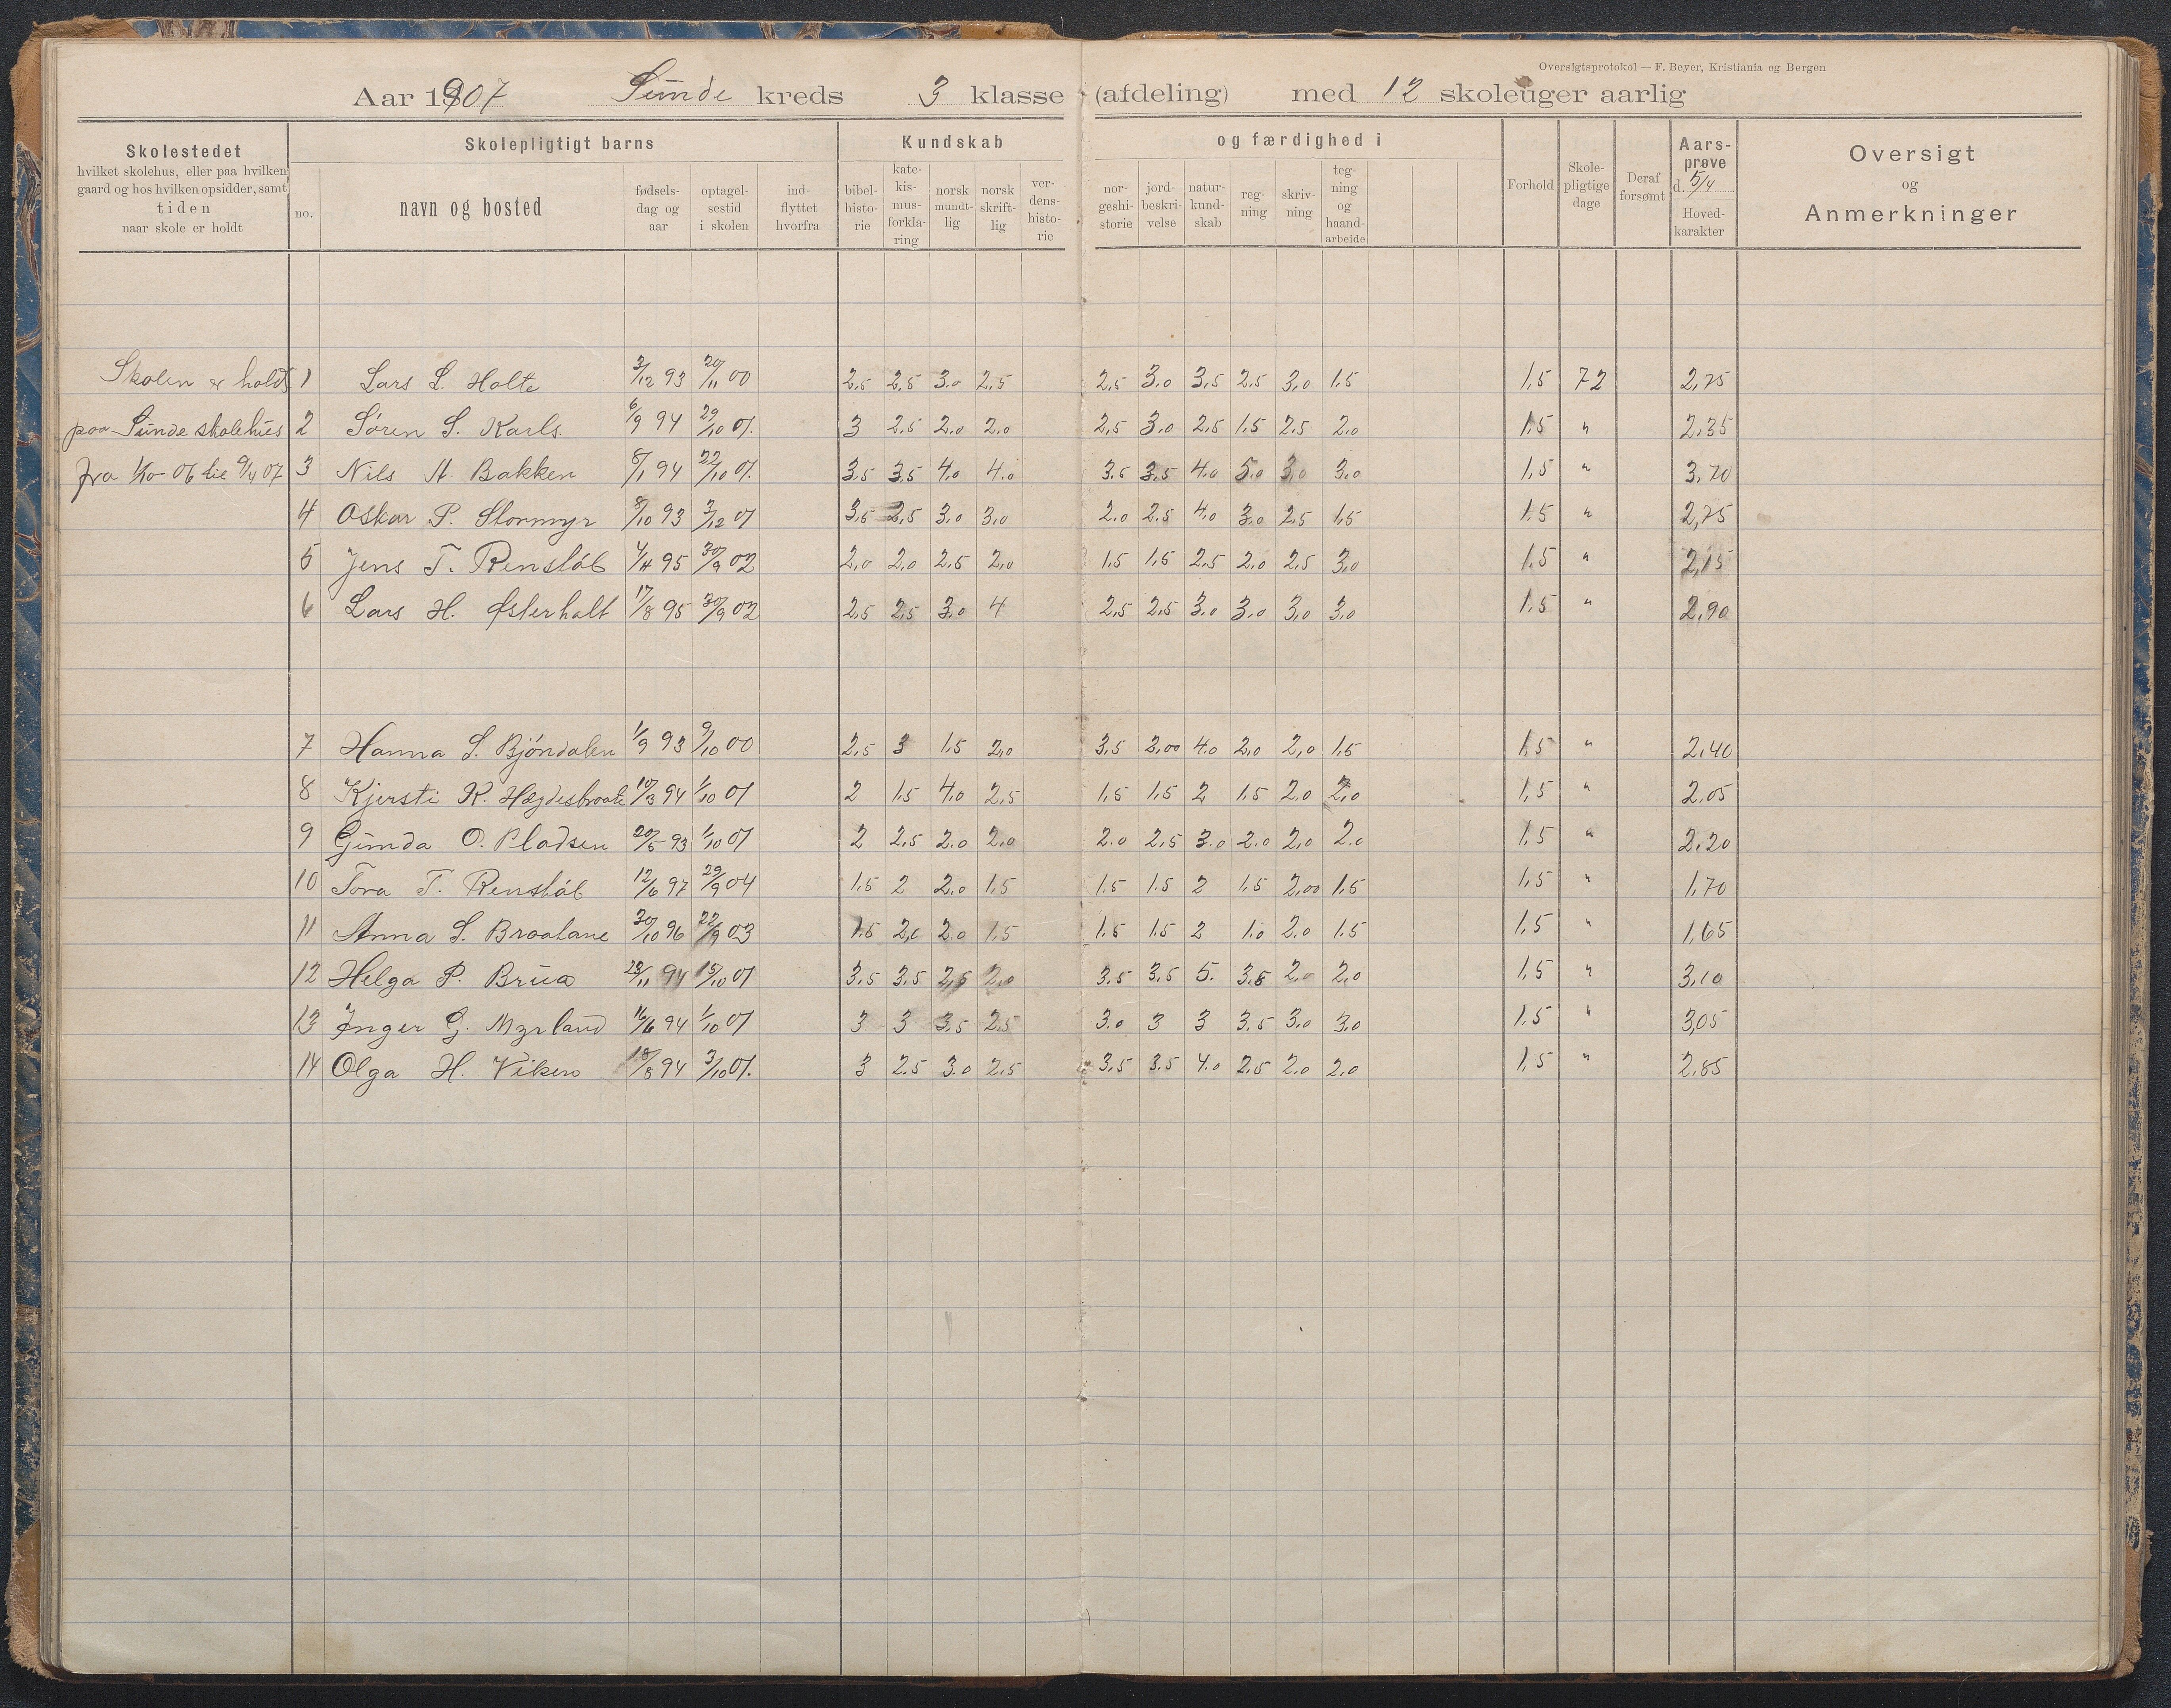 Oversigtsprotokol — F. Beyer, Kristiania og Bergen
Aar 1907 Sunde kreds 3 klasse (afdeling) med 12 skoleuger aarlig
Skolestedet
hvilket skolehus, eller paa hvilken
gaard og hos hvilken opsidder, samt
tiden
naar skole er holdt
Skolepligtigt barns
no.
navn og bosted
fødsels-
dag og
aar
optagel-
sestid
i skolen
ind-
flyttet
hvorfra
Kundskab
bibel-
histo-
rie
kate-
kis-
mus-
forkla-
ring
norsk
mundt-
lig
norsk
skrift-
lig
ver-
dens-
histo-
rie
og færdighed i
nor-
geshi-
storie
jord-
beskri-
velse
natur-
kund-
skab
reg-
ning
skriv-
ning
teg-
ning
og
haand-
arbeide
Forhold
Skole-
pligtige
dage
Deraf
forsømt
Aars-
prøve
d. 5/4
Hoved-
karakter
Oversigt
og
Anmerkninger
Skolen er holdt 1 Lars L. Holte 3/12 93 20/11 00 2,5 2,5 3.0 2,5 2,5 3.0 3,5 2,5 3,0 1.5 1,5 72 2,75
paa Sunde skolehus 2 Søren S. Karls. 6/9 94 29/10 01. 3 2.5 2.0 2.0 2,5 3.0 2,5 1.5 2.5 2.0 1,5 " 2.35
fra 1/10-06 til 9/4 07 3 Nils A. Bakken 8/1 94 22/10 01. 3.5 3.5 4.0 4.0 3.5 3.5 4.0 5.0 3.0 3.0 1,5 " 3.70
4 Oskar P. Stormyr 8/10 93 3/12 01 3,5 2,5 3.0 3,0 2.0 2.5 4.0 3.0 2.5 1.5 1.5 " 2,75
5 Jens T. Renslöb 4/4 95 30/9 02 2,0 2,0 2.5 2,0 1.5 1.5 2.5 2.0 2.5 3.0 1.5 " 2,15
6 Lars H. Østerholt 17/8 95 30/9 02 2,5 2,5 3.0 4 2,5 2.5 3.0 3.0 3.0 3.0 1.5 " 2.90
7 Hanna S. Bjöndalen 1/9 93 9/10 00 2,5 3 1.5 2,0 3,5 3,00 4.0 2,0 2,0 1.5 1.5 " 2.40
8 Kjersti K. Hægdesbroate 10/3 94 1/10 01 2 1.5 4.0 2,5 1.5 1.5 2 1.5 2.0 2.0 1,5 " 2.05
9 Gunda O. Pladsen 20/5 93 1/10 01 2 2,5 2.0 2,0 2.0 2,5 3.0 2.0 2,0 2.0 1.5 " 2.20
10 Tora T. Renslöb 12/6 97 29/9 04 1.5 2 2.0 1.5 1.5 1.5 2 1.5 2,00 1.5 1.5 " 1.70
11 Anna S. Braatane 30/10 96 22/9 03 1.5 2,0 2.0 1.5 1.5 1.5 2 1.0 2.0 1.5 1,5 " 1,65
12 Helga P. Brua 23/11 94 15/10 01 3.5 3.5 2,5 2.0 3.5 3,5 5. 3.5 2.0 2,0 1,5 " 3,10
13 Inger G. Myrland 16/6 94 1/10 01 3 3 3.5 2.5 3.0 3 3 3.5 3.0 3.0 1.5 " 3,05
14 Olga H. Viken 18/8 94 3/10 01. 3 2.5 3.0 2.5 3,5 3.5 4.0 2,5 2.0 2.0 1,5 " 2.85